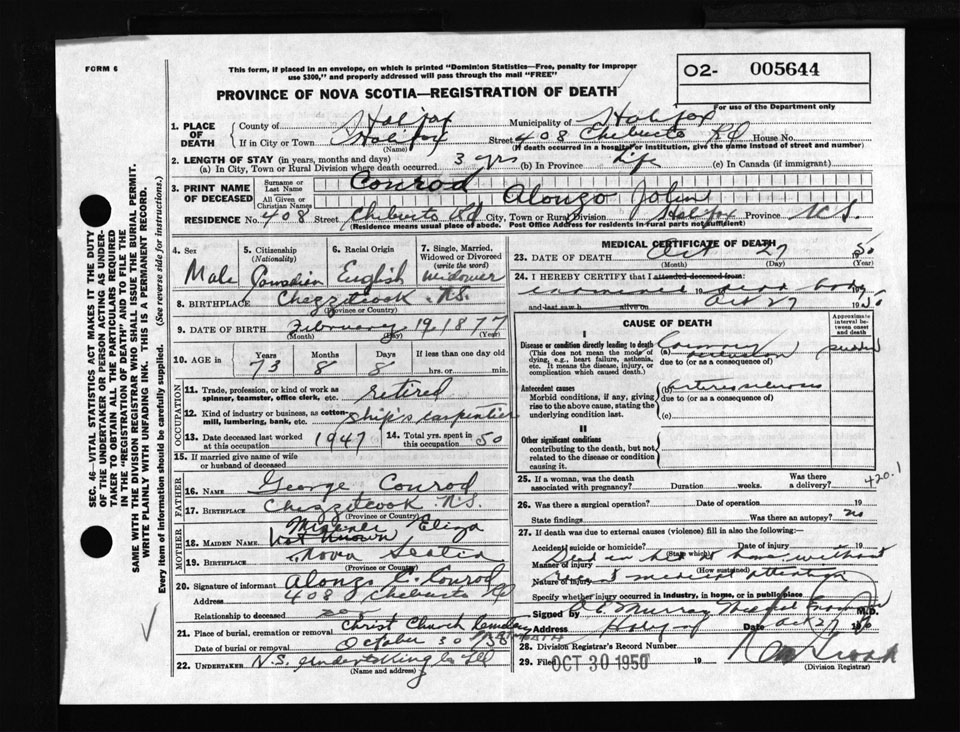 FORM 6
This form, if placed in an envelope, on which is printed "Dominion Statistics—Free, penalty for improper
use $300," and properly addressed will pass through the mail "FREE"
O2- 005644
For use of the Department only
PROVINCE OF NOVA SCOTIA—REGISTRATION OF DEATH
1. PLACE OF DEATH
County of Halifax Municipality of Halifax
If in City or Town Halifax Street 408 Chebucto Rd House No.
(Name) (If death occurred in a hospital or institution, give the name instead of street and number)
2. LENGTH OF STAY (in years, months and days)
(a) In City, Town or Rural Division where death occurred 3 yrs (b) In Province Life (c) In Canada (if immigrant)
3. PRINT NAME OF DECEASED
Surname or Last Name Conrod
All Given or Christian Names Alonzo John
RESIDENCE No. 408 Street Chebucto Rd City, Town or Rural Division Halifax Province N.S.
(Residence means usual place of abode. Post Office Address for residents in rural parts not sufficient)
4. Sex Male
5. Citizenship (Nationality) Canadian
6. Racial Origin English
7. Single, Married, Widowed or Divorced (write the word) Widower
8. BIRTHPLACE Chezzitcook N.S.
(Province or Country)
9. DATE OF BIRTH February 19 1877
(Month) (Day)
10. AGE in Years 73 Months 8 Days 8 If less than one day old hrs. or min.
OCCUPATION
11. Trade, profession, or kind of work as spinner, teamster, office clerk, etc. retired
12. Kind of industry or business, as cotton-mill, lumbering, bank, etc. Ship's carpentier
13. Date deceased last worked at this occupation 1947 14. Total yrs. spent in this occupation 50
15. If married give name of wife or husband of deceased
FATHER
16. NAME George Conrod
17. BIRTHPLACE Chezzitcook N.S.
(Province or Country)
MOTHER
18. MAIDEN NAME Eliza
Not Known
19. BIRTHPLACE Nova Scotia
(Province or Country)
20. Signature of informant Alonzo C. Conrod
Address 408 Chebucto Rd
Relationship to deceased son
21. Place of burial, cremation or removal Christ Church Cemetery
Date of burial or removal October 30 1950
22. UNDERTAKER N.S. Undertaking Co Ltd
(Name and address)
MEDICAL CERTIFICATE OF DEATH
23. DATE OF DEATH Oct 27 1950
(Month) (Day) (Year)
24. I HEREBY CERTIFY that I attended deceased from:
examined 19 dead body
and last saw h alive on Oct 27 1950
CAUSE OF DEATH
Approximate interval between onset and death
I
Disease or condition directly leading to death
(This does not mean the mode of dying, e.g., heart failure, asthenia, etc. It means the disease, injury, or complication which caused death.)
(a) Coronary occlusion sudden
due to (or as a consequence of)
Antecedent causes
Morbid conditions, if any, giving rise to the above cause, stating the underlying condition last.
(b) arteriosclerosis
due to (or as a consequence of)
(c)
II
Other significant conditions
contributing to the death, but not related to the disease or condition causing it.
25. If a woman, was the death associated with pregnancy? Duration weeks. Was there a delivery? 420.1
26. Was there a surgical operation? Date of operation 19
State findings Was there an autopsy? no
27. If death was due to external causes (violence) fill in also the following:
Accident, suicide or homicide? Date of injury 19
(State which)
Manner of injury Died in bed at home without
(How sustained)
Nature of injury medical attention
Specify whether injury occurred in Industry, in home, or in public place
Signed by Murray Medical M.D.
Address Halifax Date Oct 27 19
28. Division Registrar's Record Number
29. Filed OCT 30 1950 19
(Division Registrar)
SEC. 46—VITAL STATISTICS ACT MAKES IT THE DUTY
OF THE UNDERTAKER OR PERSON ACTING AS UNDER-
TAKER TO OBTAIN ALL THE PARTICULARS REQUIRED
IN THE "REGISTRATION OF DEATH" AND TO FILE THE
SAME WITH THE DIVISION REGISTRAR WHO SHALL ISSUE THE BURIAL PERMIT.
WRITE PLAINLY WITH UNFADING INK. THIS IS A PERMANENT RECORD.
Every item of information should be carefully supplied. (See reverse side for instructions.)